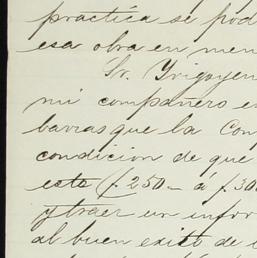 practica se pod
esa obra en men
Sr. Yrigoyen
mi compañero en
barras que la Con
condicion de que
este (£.250_ á £.30
y traer un infor
al buen exito de